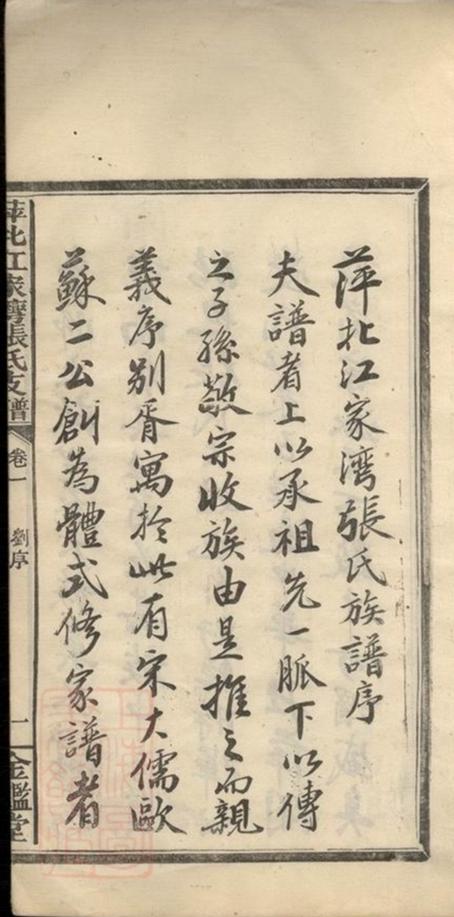 萍北江家湾張氏族譜序
夫譜者上以承祖先一脈下以傳
之子孫敬宗收族由是推之而親
義序别胥寓於此有宋大儒歐
蘇二公創為體式修家譜者
萍北江家灣張氏支譜
卷一
劉序
一
金鑑堂